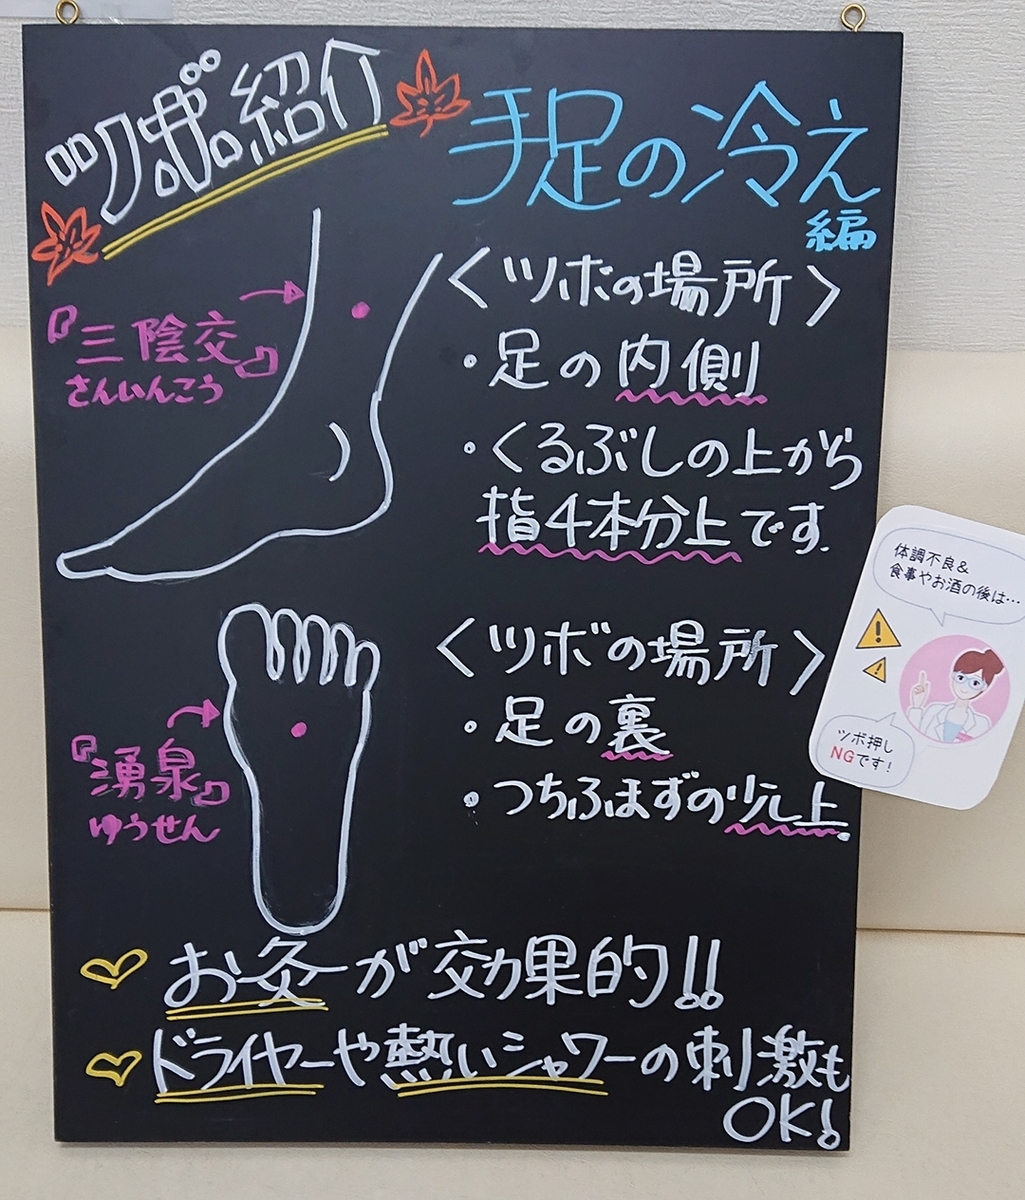 ツボ紹介
手足の冷え
編
『三陰交』
さんいんこう
〈ツボの場所〉
・足の内側
・くるぶしの上から
指4本分上です.
体調不良&
食事やお酒の後は…
ツボ押し
NGです!
『湧泉』
ゆうせん
〈ツボの場所〉
・足の裏
・つちふまずの少し上.
お灸が効果的!!
ドライヤーや熱いシャワーの刺激も
OK!